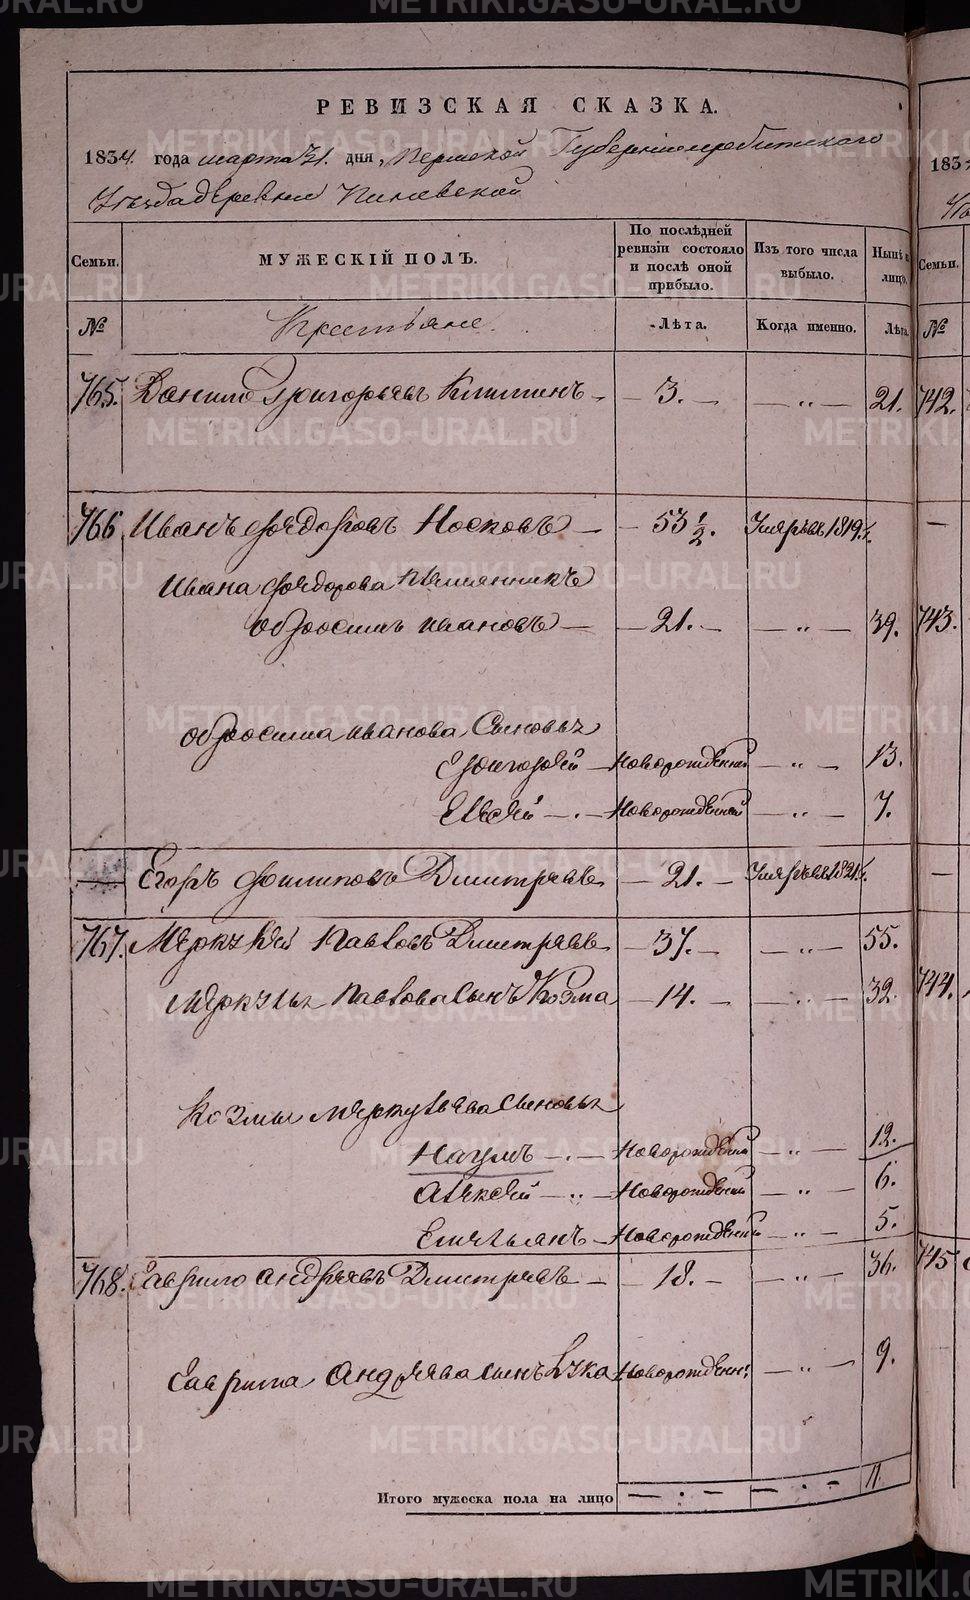 РЕВИЗСКАЯ СКАЗКА.
1834 года марта 21. дня, Пермской Губернии Ирбитского
Уѣзда деревни
Семьи. МУЖЕСКІЙ ПОЛЪ. По послѣдней ревизіи состояло и послѣ оной прибыло. Изъ того числа выбыло. Нынѣ лицо.
№ Крестьяне. Лѣта. Когда именно. Лѣта.
765. Данило Григорьевъ — 3. — — „ — 21.
766 Иванъ Фёдоровъ Носковъ — 53 ½. Умеръ въ 1819 г.
Ивана Фёдорова племянникъ
Обросимъ Ивановъ — 21. — — „ — 39.
Обросима Иванова Сыновья
Григорей — Новорожденный — „ — 13.
Евсей — . — Новорожденный — „ — 7.
Егоръ Филиповъ Дмитрѣвъ — 21. — Умеръ въ 1821 г.
767. Меркулей Павловъ Дмитрѣвъ — 37. — — „ — 55.
Меркулья Павлова Сынъ Козма — 14. — — „ — 32.
Козмы Меркульева Сыновья
Наумъ — . — Новорожденный — „ — 12.
Алексей — „ — Новорожденный — „ — 6.
Емельянъ — Новорожденный — „ — 5.
768. Гаврило Андрѣевъ Дмитрѣвъ — 18. — — „ — 36.
Гаврила Андрѣева Сынъ Лука Новорожденн: — „ — 9.
Итого мужеска пола на лицо — : — — . — 11.
183
Семьи.
№
742.
—
743.
—
744.
745
METRIKI.GASO-URAL.RU